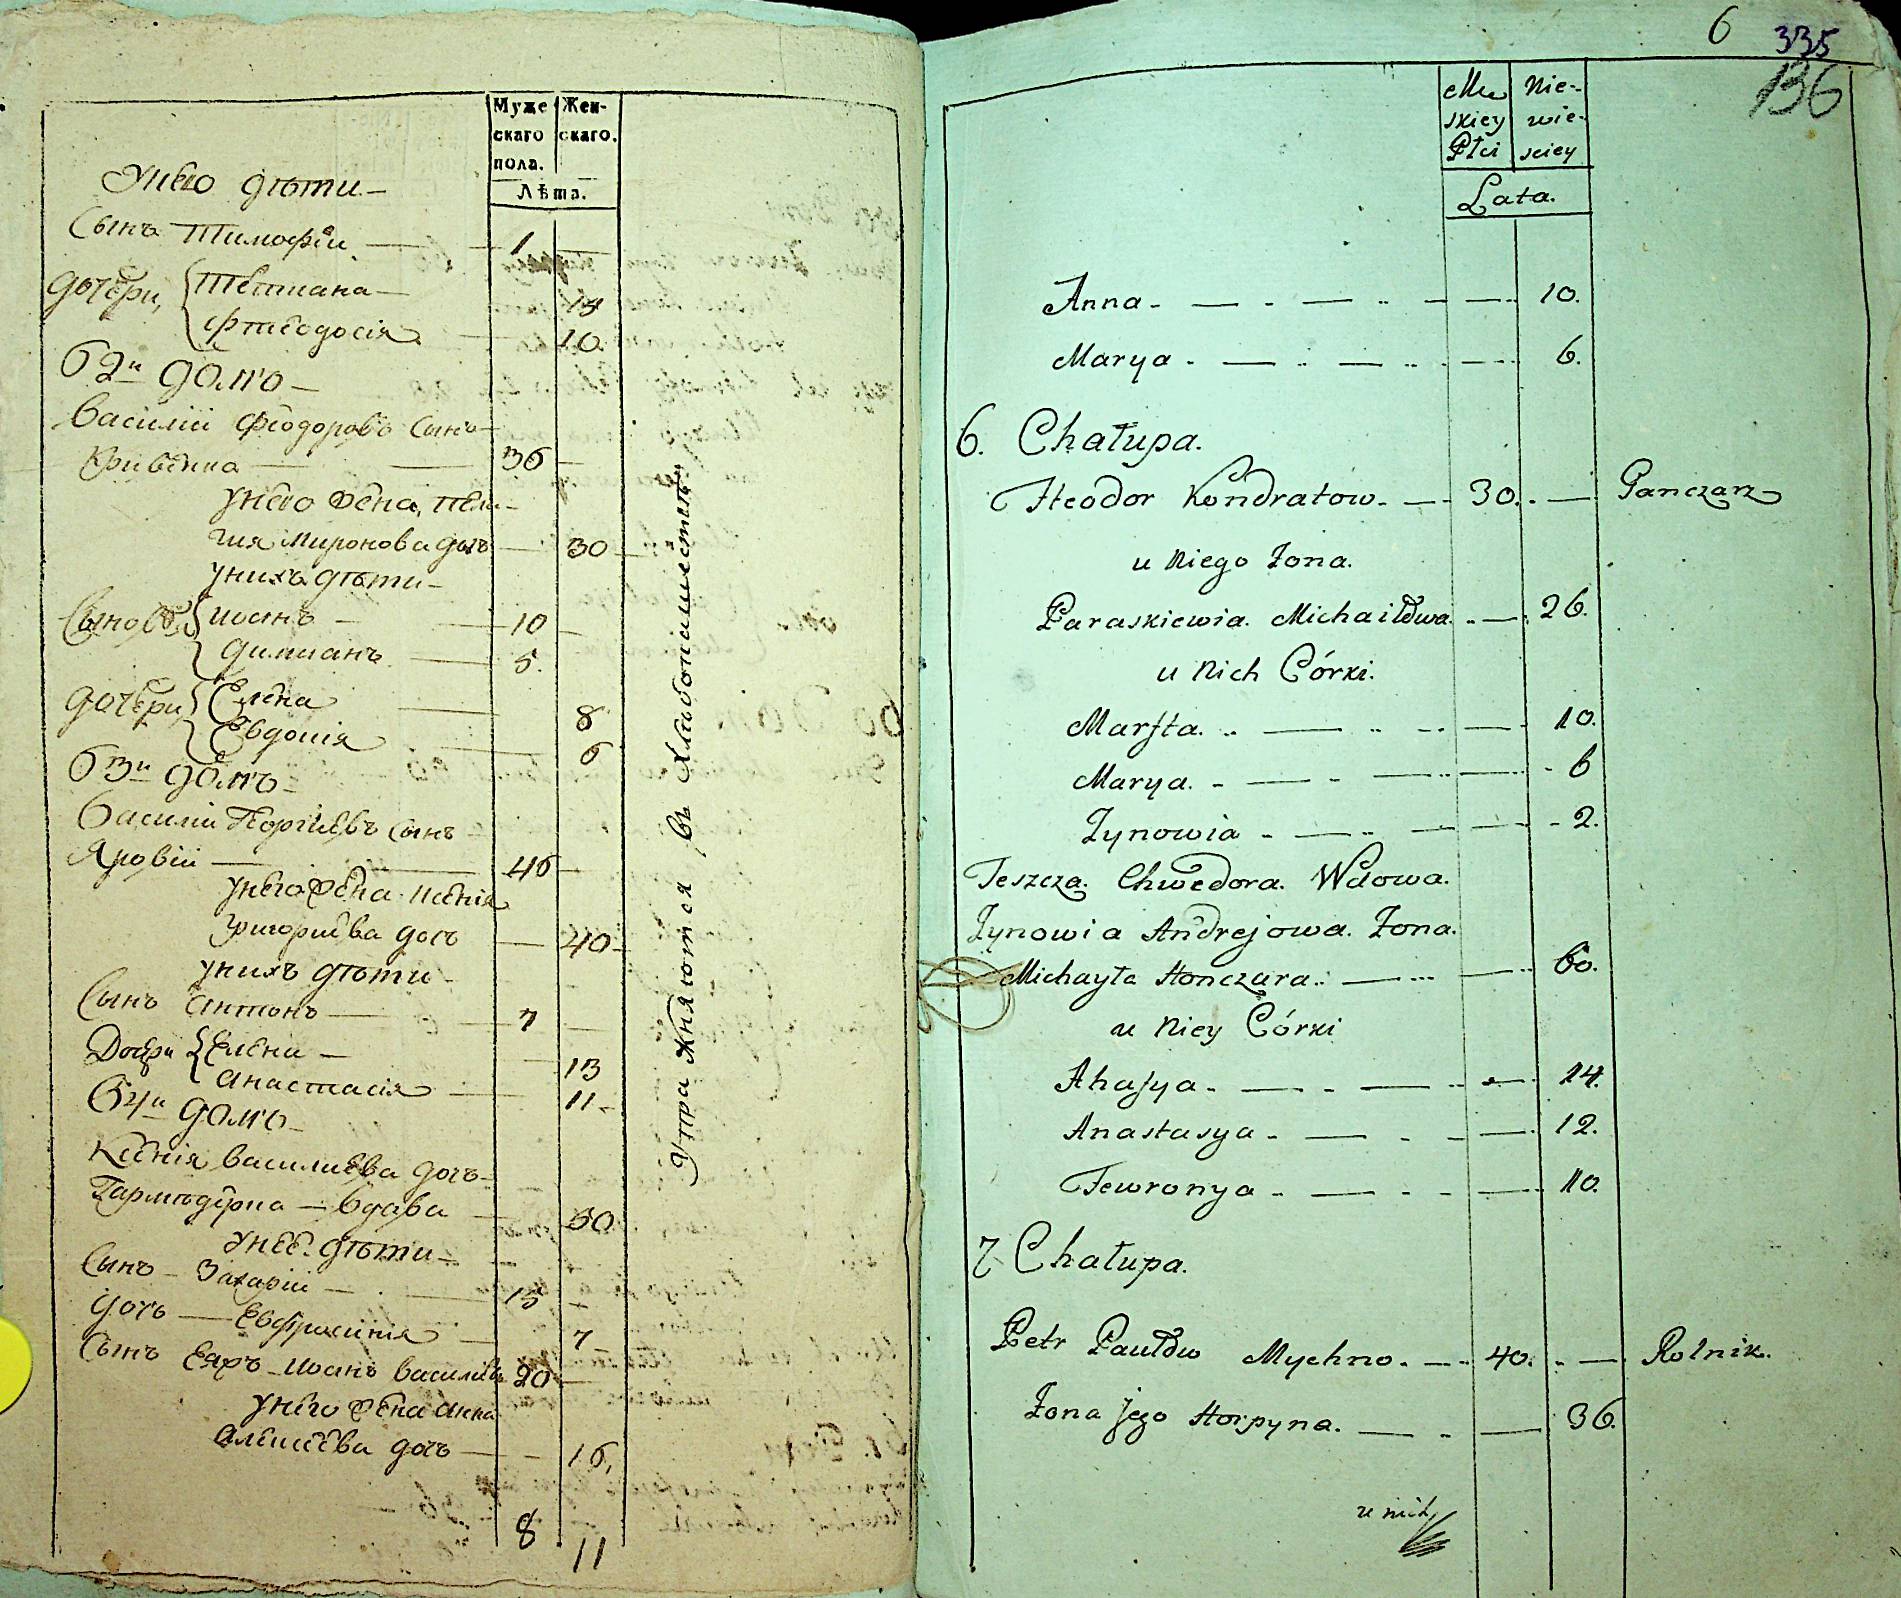 Муже Жен-
скаго скаго.
пола.
Лѣта.
Унего дѣти
Сынъ Тимофѣй 1
дочери, Тетиана 14
Фтеодосія 10
62й домъ
Василій Феодоровъ сынъ
Кривенка 36
унего жена, Пела-
гия Миронова дочь 30
унихъ дѣти
Сынове Иоанъ 10
Димианъ 5.
дочери Елена 8
Евдокія 6
63й домъ
Василій Георгиевъ сынъ
Яровій 46
унего жена Ксенія
Григориева дочь 40
унихъ дѣти
Сынъ Антонъ 7
Дочери Елена 13
Анастасія 11
64й домъ
Ксенія Василиева дочь
вдава 50
унее дѣти
Сынъ Захарій 15
дочь Евфросинія 7
Сынъ Еяръ Иоанъ Василиевъ 20
унего жена Анна
Алексеева дочь 16,
8 11
Упражняются въ Хлѣбопашествѣ
6 335
136
Mu Nie-
skiey wie-
Płci sciey
Lata.
Anna 10.
Marya 6.
6. Chałupa.
Fteodor Kondratow 30. Ganczarz
u Niego Żona.
Paraskiewia Michaiłowa 26.
u Nich Córki.
Marfta 10.
Marya 6
Zynowia 2.
Teszcza Chwedora Wdowa.
Zynowia Andrejowa Żona.
Michayła Honczara 60.
u Niey Córki
Ahafya 14.
Anastasya 12.
Fewronya 10.
7 Chałupa.
Petr Paułow Mychno 40. Rolnik.
Żona jego Horpyna. 36.
u nich